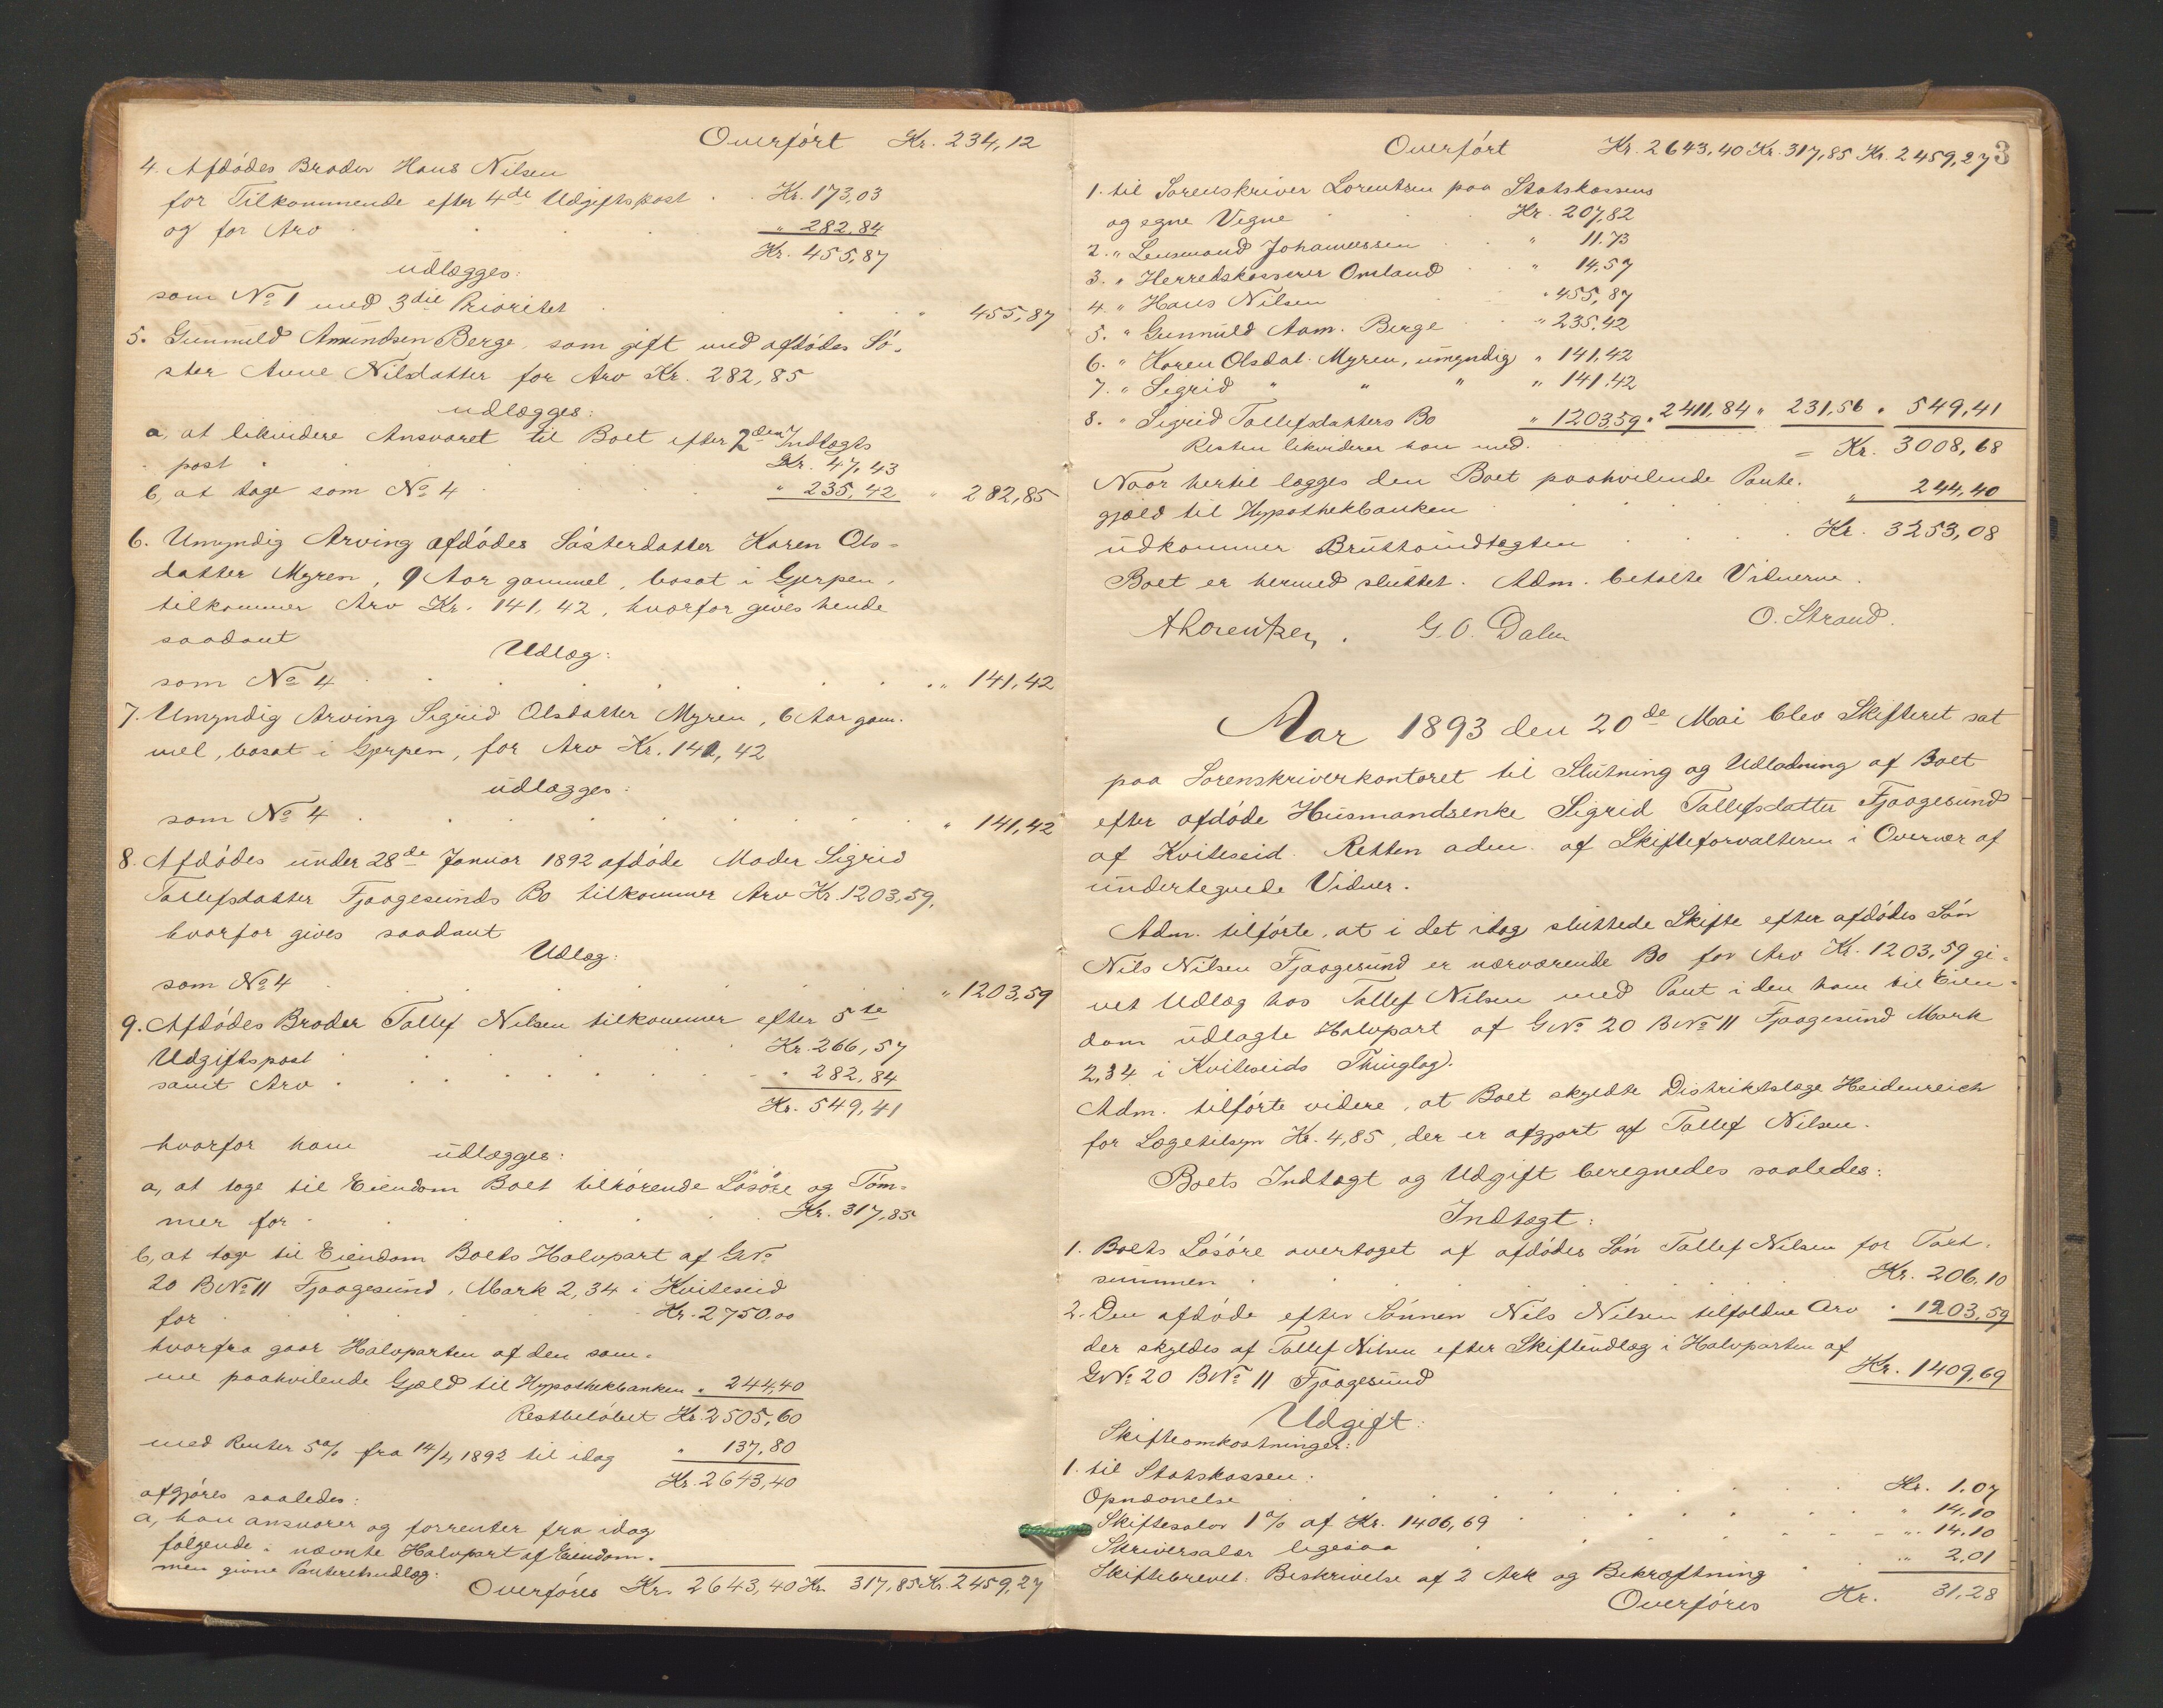 Overført Kr. 234,12
4. Afdødes Broder Hans Nilsen
for Tilkommende efter 4de Udgiftspost . . Kr. 173,03
og for Arv . . . . " 282.84
Kr. 455,87
udlægges:
som No 1 med 3die Prioritet . . . " 455,87
5. Gunnuld Amundsen Berge, som gift med afdødes Sø-
ster Anne Nilsdatter for Arv Kr. 282,85
udlægges:
a, at likvidere Ansvaret til Boet efter 2den Indtægts
post . . . . Kr. 47,43
b, at tage som No 4 . . . " 235,42 " 282,85
6. Umyndig Arving afdødes Søsterdatter Karen Ols-
datter Myren, 9 Aar gammel, bosat i Gjerpen,
tilkommer Arv Kr. 141,42, hvorfor gives hende
saadant
Udlæg:
som No 4 . . . . " 141,42
7. Umyndig Arving Sigrid Olsdatter Myren, 6 Aar gam-
mel, bosat i Gjerpen, for Arv Kr. 141,42
udlægges:
som No 4 . . . . " 141,42
8. Afdødes under 28de Januar 1892 afdøde Moder Sigrid
Tallefsdatter Fjaagesunds Bo tilkommer Arv Kr. 1203,59,
hvorfor gives saadant
Udlæg:
som No 4 . . . . " 1203,59
9. Afdødes Broder Tallef Nilsen tilkommer efter 5te
Udgiftspost . . . . Kr. 266,57
samt Arv . . . . " 282,84
Kr. 549,41
hvorfor ham udlægges:
a, at tage til Eiendom Boet tilhørende Løsøre og Tøm-
mer for . . . . Kr. 317,85
b, at tage til Eiendom Boets Halvpart af GNo
20 BNo 11 Fjaagesund, Mark 2,34 i Kviteseid
for . . . . Kr. 2750.00
hvorfra gaar Halvparten af den sam-
me paahvilende Gjæld til Hypothekbanken " 244,40
Restbeløbet Kr. 2505,60
med Renter 5% fra 14/4 1892 til idag " 137,80
Kr. 2643,40
afgjøres saaledes:
a, han ansvarer og forrenter fra idag
følgende i nævnte Halvpart af Eiendom-
men givne Panteretsudlæg:
Overføres Kr. 2643,40 Kr. 317,85 Kr. 2459,27
3
Overført Kr. 2643,40 Kr. 317,85 Kr. 2459,27
1. til Sorenskriver Lorentzen paa Statskassens
og egne Vegne . . . Kr. 207,82
2. " Lensmand Johannessen . . " 11.73
3. " Herredskasserer Omland . . " 14,57
4. " Hans Nilsen . . " 455,87
5. " Gunnuld Aam. Berge . . " 235,42
6. " Karen Olsdat. Myren, umyndig " 141,42
7. " Sigrid " " " " 141,42
8. " Sigrid Tallefsdatters Bo " 1203,59 " 2411,84 " 231,56 " 549,41
Resten likviderer han med . . = Kr. 3008,68
Naar hertil lægges den Boet paahvilende Pante-
gjæld til Hypothekbanken . . . " 244,40
udkommer Bruttoindtægten . . . Kr. 3253,08
Boet er hermed sluttet. Adm. betalte Vidnerne.
ALorentzen. G. O. Dalen O. Strand.
Aar 1893 den 20de Mai blev Skifteret sat
paa Sorenskriverkontoret til Slutning og Udlodning af Boet
efter afdøde Husmandsenke Sigrid Tallefsdatter Fjaagesund
af Kviteseid. Retten adm. af Skifteforvalteren i Overvær af
undertegnede Vidner.
Adm. tilførte, at i det idag sluttede Skifte efter afdødes Søn
Nils Nilsen Fjaagesund er nærværende Bo for Arv Kr. 1203,59 gi-
vet Udlæg hos Tallef Nilsen med Pant i den ham til Eien-
dom udlagte Halvpart af GNo 20 BNo 11 Fjaagesund Mark
2,34 i Kviteseids Thinglag.
Adm. tilførte videre, at Boet skyldte Distriktslæge Heidenreich
for Lægetilsyn Kr. 4,85, der er afgjort af Tallef Nilsen.
Boets Indtægt og Udgift beregnedes saaledes:
Indtægt:
1. Boets Løsøre overtaget af afdødes Søn Tallef Nilsen for Taxt-
summen . . . . Kr. 206.10
2. Den afdøde efter Sønnen Nils Nilsen tilfaldne Arv " 1203,59
der skyldes af Tallef Nilsen efter Skifteudlæg i Halvparten af
GNo 20 BNo 11 Fjaagesund Kr. 1409,69
Udgift:
Skifteomkostninger:
1. til Statskassen:
Opnævnelse . . . . Kr. 1.07
Skiftesalær 1% af Kr. 1406,69 . . . " 14.10
Skriversalær ligesaa . . . " 14.10
Skiftebrevet. Beskrivelse af 2 Ark og Bekræftning . . " 2,01
Overføres Kr. 31,28